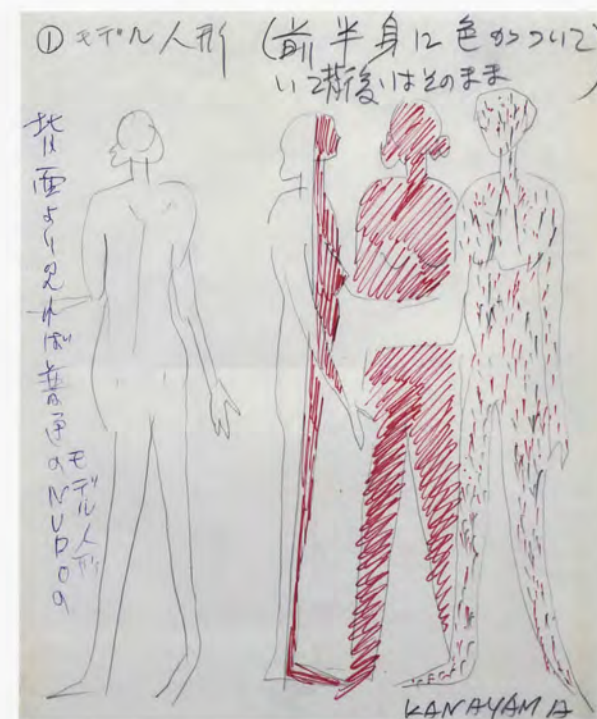 ① モデル人形 (前半身に色がついて
いて背後はそのまま)
背面より見れば普通のNUDOの
モデル人形
KANAYAMA